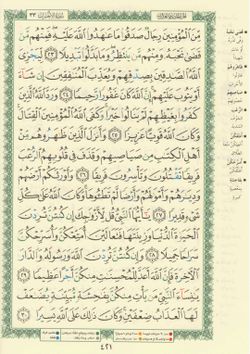 مِّنَ ٱلْمُؤْمِنِينَ رِجَالٌ صَدَقُوا۟ مَا عَـٰهَدُوا۟ ٱللَّهَ عَلَيْهِ فَمِنْهُم مَّن
قَضَىٰ نَحْبَهُۥ وَمِنْهُم مَّن يَنتَظِرُ وَمَا بَدَّلُوا۟ تَبْدِيلًا ﴿٢٣﴾ لِّيَجْزِىَ
ٱللَّهُ ٱلصَّـٰدِقِينَ بِصِدْقِهِمْ وَيُعَذِّبَ ٱلْمُنَـٰفِقِينَ إِن شَآءَ
أَوْ يَتُوبَ عَلَيْهِمْ إِنَّ ٱللَّهَ كَانَ غَفُورًا رَّحِيمًا ﴿٢٤﴾ وَرَدَّ ٱللَّهُ ٱلَّذِينَ
كَفَرُوا۟ بِغَيْظِهِمْ لَمْ يَنَالُوا۟ خَيْرًا وَكَفَى ٱللَّهُ ٱلْمُؤْمِنِينَ ٱلْقِتَالَ
وَكَانَ ٱللَّهُ قَوِيًّا عَزِيزًا ﴿٢٥﴾ وَأَنزَلَ ٱلَّذِينَ ظَـٰهَرُوهُم مِّنْ
أَهْلِ ٱلْكِتَـٰبِ مِن صَيَاصِيهِمْ وَقَذَفَ فِى قُلُوبِهِمُ ٱلرُّعْبَ
فَرِيقًا تَقْتُلُونَ وَتَأْسِرُونَ فَرِيقًا ﴿٢٦﴾ وَأَوْرَثَكُمْ أَرْضَهُمْ
وَدِيَـٰرَهُمْ وَأَمْوَٰلَهُمْ وَأَرْضًا لَّمْ تَطَـُٔوهَا وَكَانَ ٱللَّهُ عَلَىٰ كُلِّ
شَىْءٍ قَدِيرًا ﴿٢٧﴾ يَـٰٓأَيُّهَا ٱلنَّبِىُّ قُل لِّأَزْوَٰجِكَ إِن كُنتُنَّ تُرِدْنَ
ٱلْحَيَوٰةَ ٱلدُّنْيَا وَزِينَتَهَا فَتَعَالَيْنَ أُمَتِّعْكُنَّ وَأُسَرِّحْكُنَّ
سَرَاحًا جَمِيلًا ﴿٢٨﴾ وَإِن كُنتُنَّ تُرِدْنَ ٱللَّهَ وَرَسُولَهُۥ وَٱلدَّارَ
ٱلْـَٔاخِرَةَ فَإِنَّ ٱللَّهَ أَعَدَّ لِلْمُحْسِنَـٰتِ مِنكُنَّ أَجْرًا عَظِيمًا ﴿٢٩﴾
يَـٰنِسَآءَ ٱلنَّبِىِّ مَن يَأْتِ مِنكُنَّ بِفَـٰحِشَةٍ مُّبَيِّنَةٍ يُضَـٰعَفْ
لَهَا ٱلْعَذَابُ ضِعْفَيْنِ وَكَانَ ذَٰلِكَ عَلَى ٱللَّهِ يَسِيرًا ﴿٣٠﴾
٤٢١